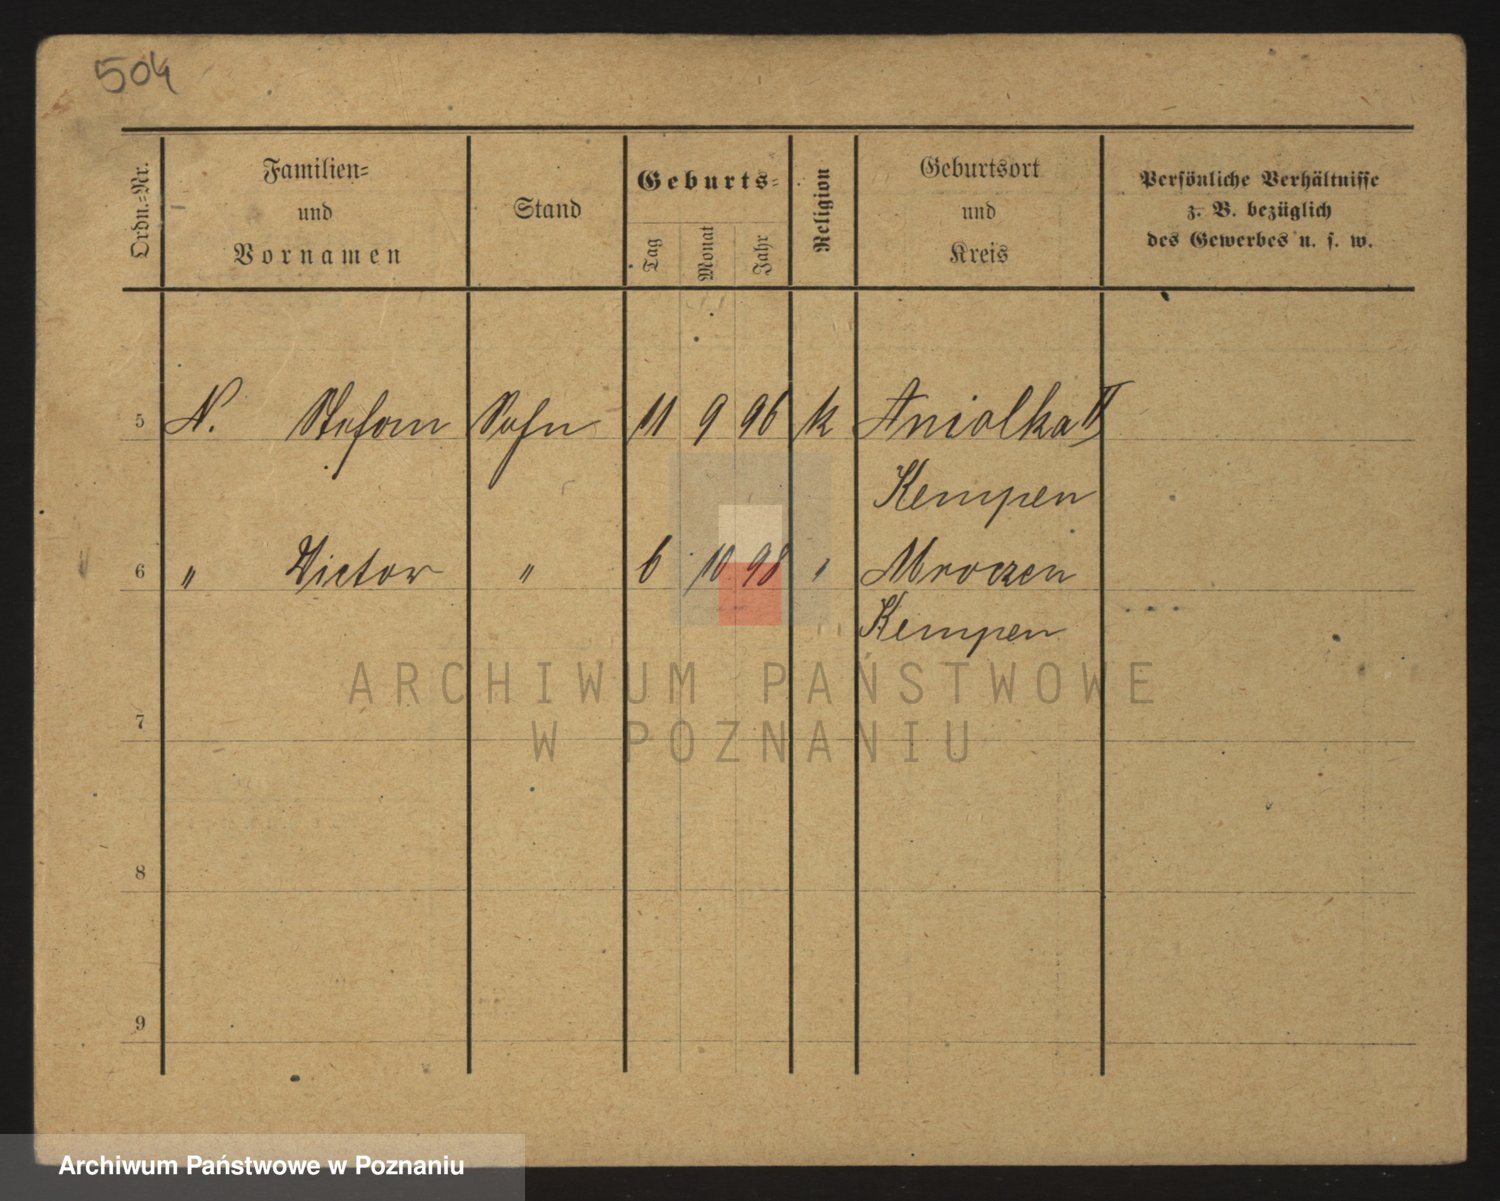 504
Ordn.-Nr.
Familien-
und
Vornamen
Stand
Geburts-
Tag
Monat
Jahr
Religion
Geburtsort
und
Kreis
Persönliche Verhältnisse
z. B. bezüglich
des Gewerbes u. s. w.
5 N. Stefan Sohn 11 9 96 k Aniolka II
Kempen
6 " Victor " 6 10 98 " Mroczen
Kempen
ARCHIWUM PAŃSTWOWE
W POZNANIU
7
8
9
Archiwum Państwowe w Poznaniu